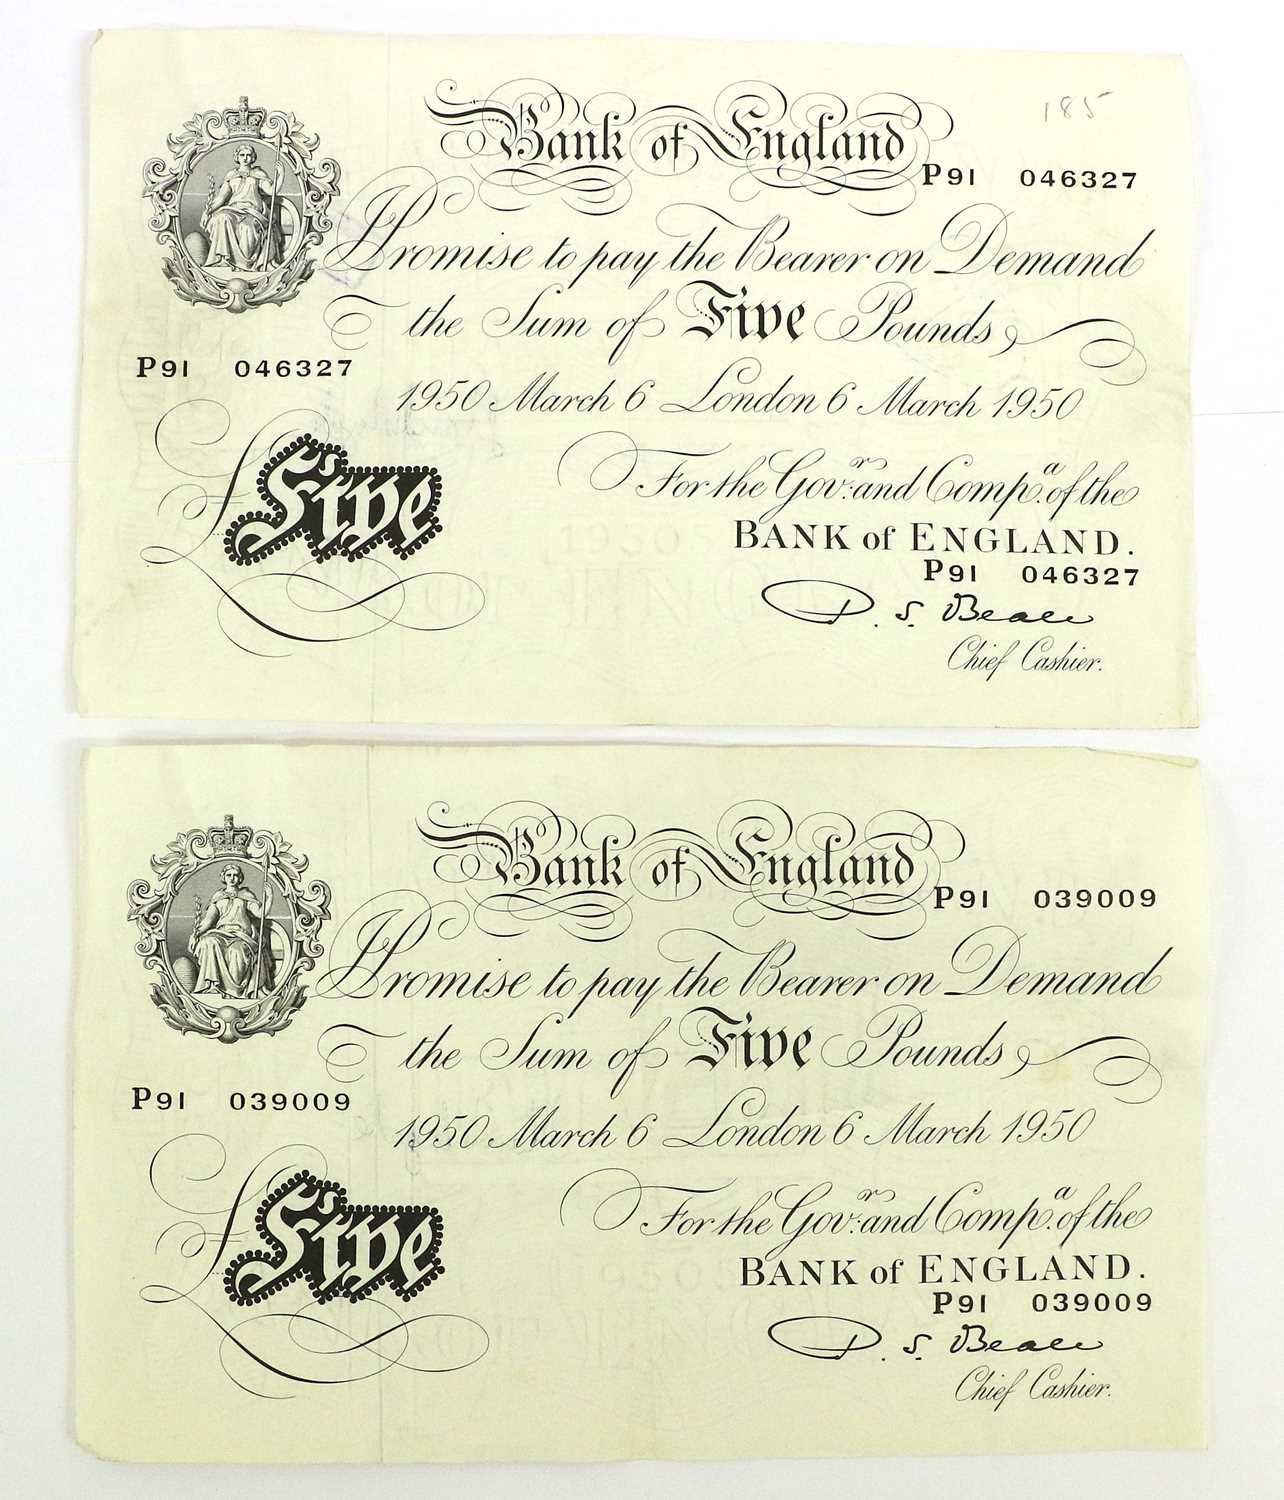 185
Bank of England
P91 046327
I Promise to pay the Bearer on Demand
the Sum of Five Pounds
P91 046327
1950 March 6 London 6 March 1950
For the Govr. and Compa. of the
BANK of ENGLAND.
Five
P91 046327
P. S. Beale
Chief Cashier.
Bank of England
P91 039009
I Promise to pay the Bearer on Demand
the Sum of Five Pounds
P91 039009
1950 March 6 London 6 March 1950
For the Govr. and Compa. of the
BANK of ENGLAND.
£Five
P91 039009
P. S. Beale
Chief Cashier.